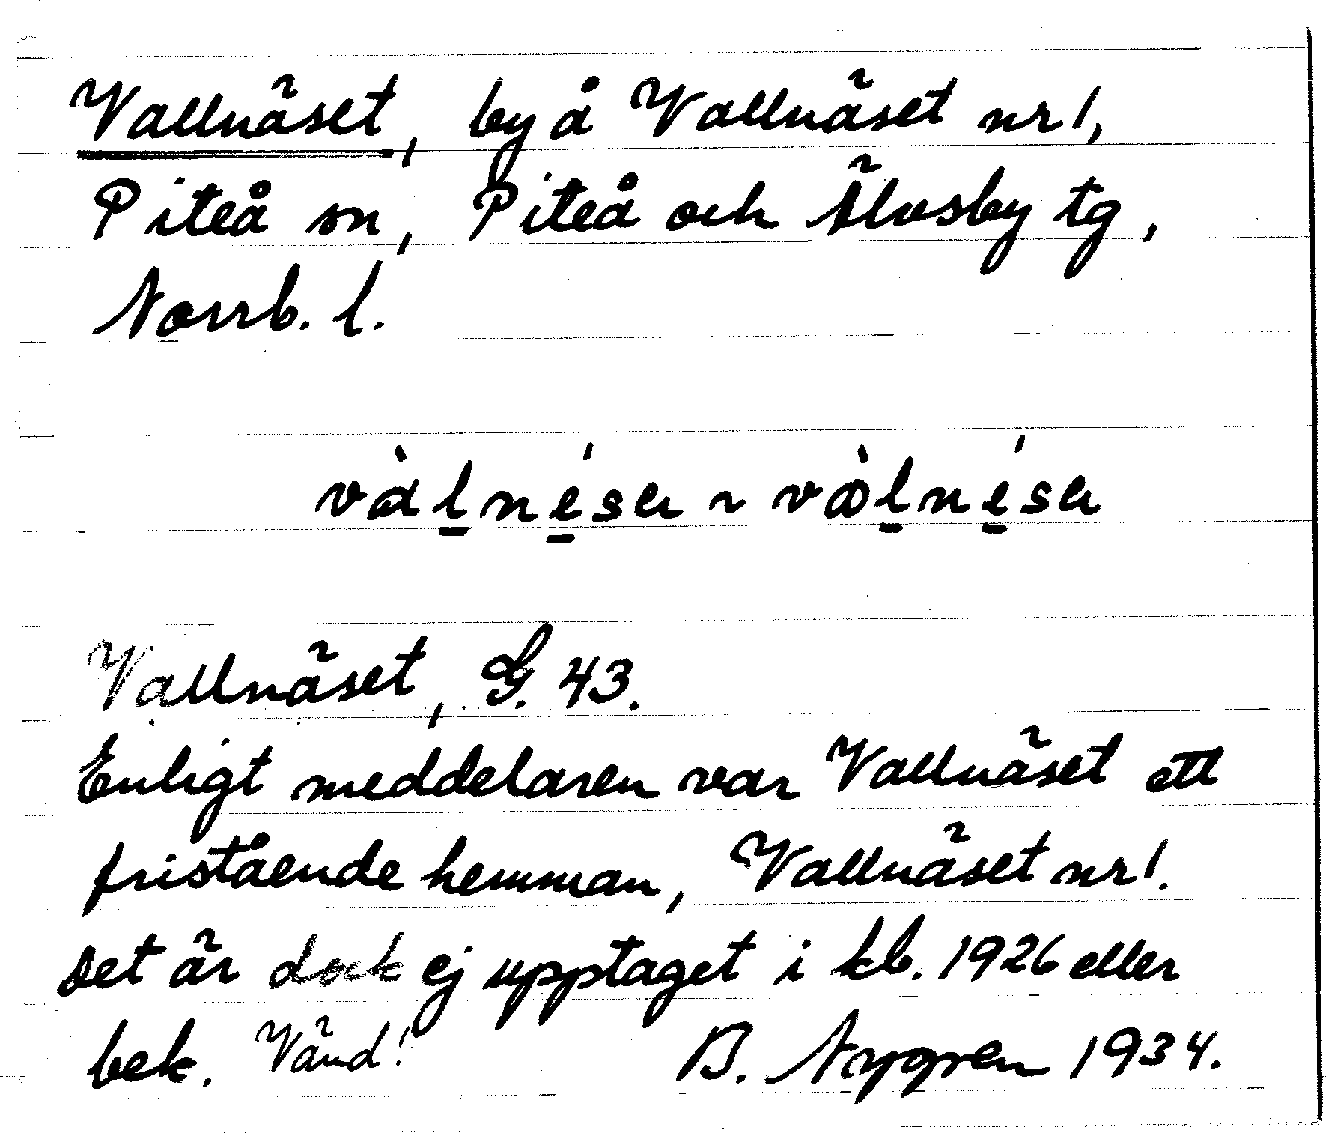 Vallnäset, by å Vallnäset nr 1,
Piteå sn, Piteå och Älvsby tg,
Norrb. l.
Vallnäset, G. 43.
Enligt meddelaren var Vallnäset ett
fristående hemman, Vallnäset nr 1.
Det är dock ej upptaget i kb. 1926 eller
bek. Vänd! B. Nygren 1934.